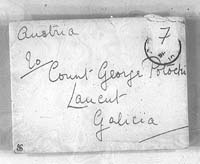 Austria
7
To
Count George Potocki
Lancut
Galicia